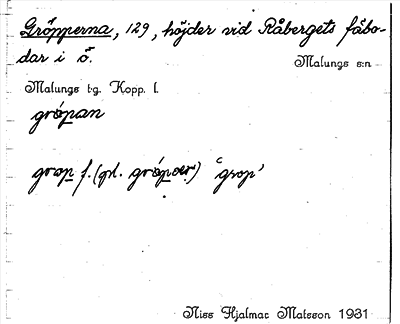 Gröpperna, 129, höjder vid Råbergets fäbo-
dar i ö.
Malungs s:n
Malungs t:g. Kopp. l.
gröpan
grop f. (pl. gröper) 'grop'
Nils Hjalmar Matsson 1931